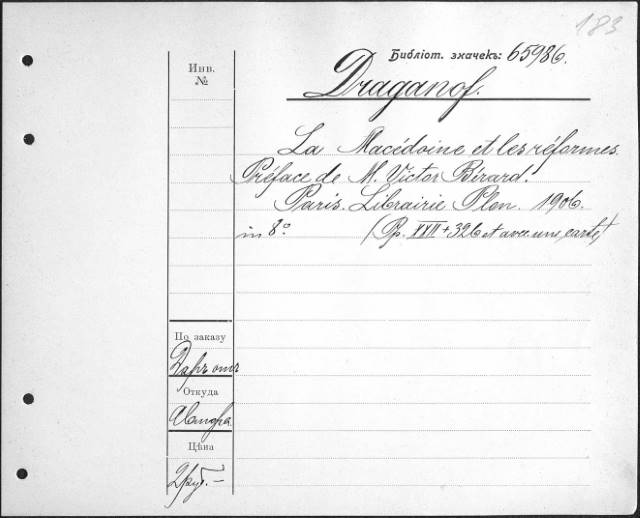 183
Библіот. значекъ: 65986.
Инв.
№
Draganof.
La Macédoine et les réformes.
Préface de M. Victor Bérard.
Paris. Librairie Plon. 1906.
in 8°
(Pp. XXII + 326 et avec une carte)
По заказу
Даръ отъ
Откуда
Цѣна
2 руб. —